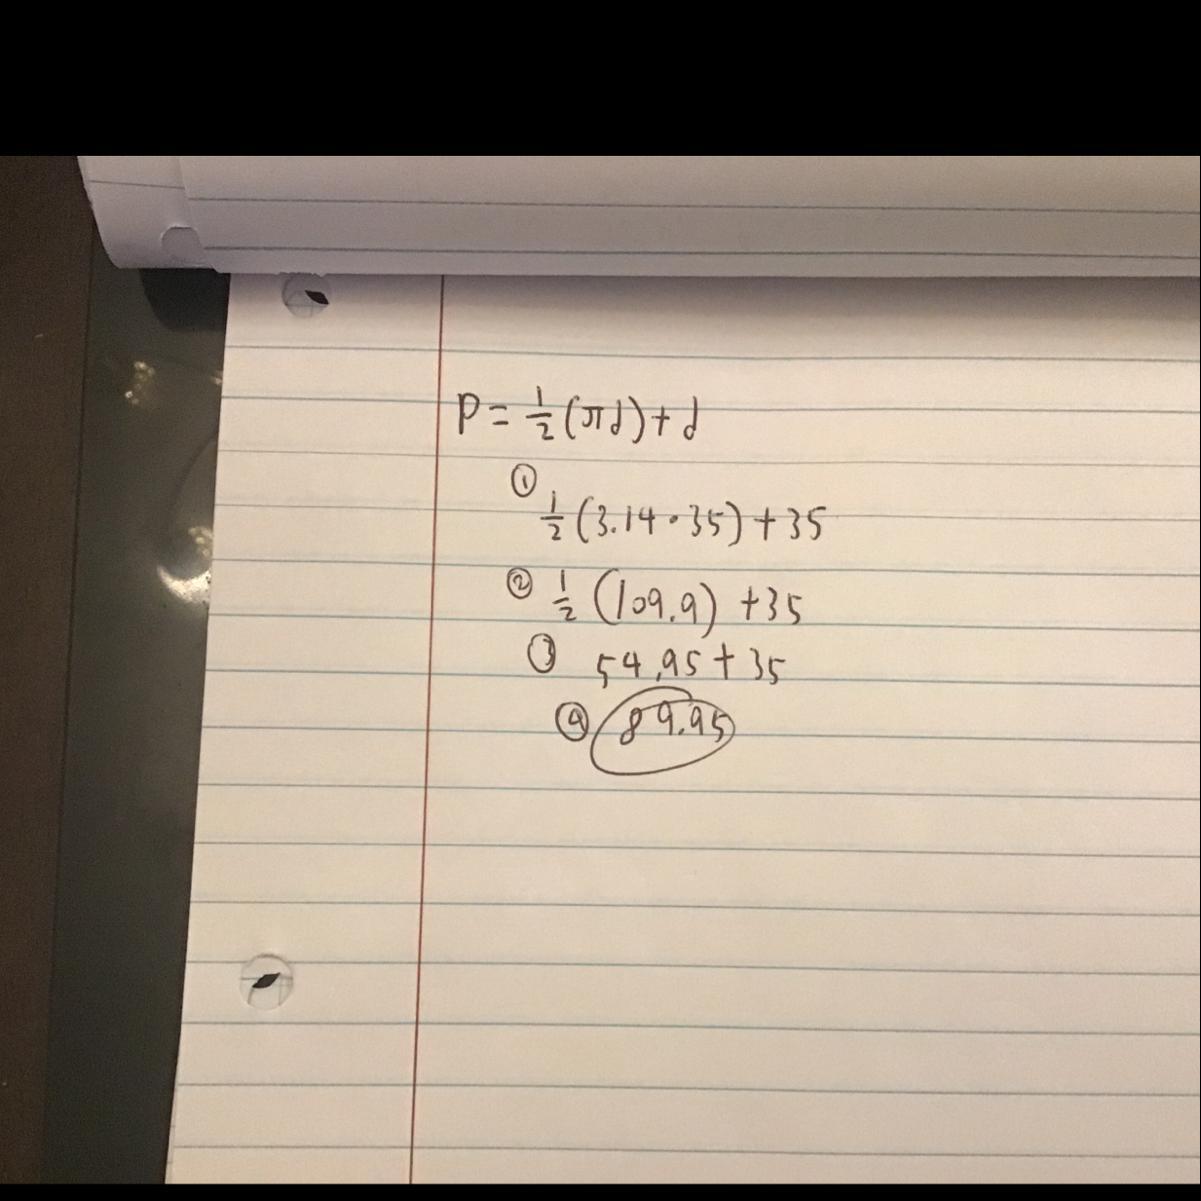 P = 1/2 (πd) + d
①
1/2 (3.14 • 35) + 35
② 1/2 (109.9) + 35
③ 54.95 + 35
④ 89.95